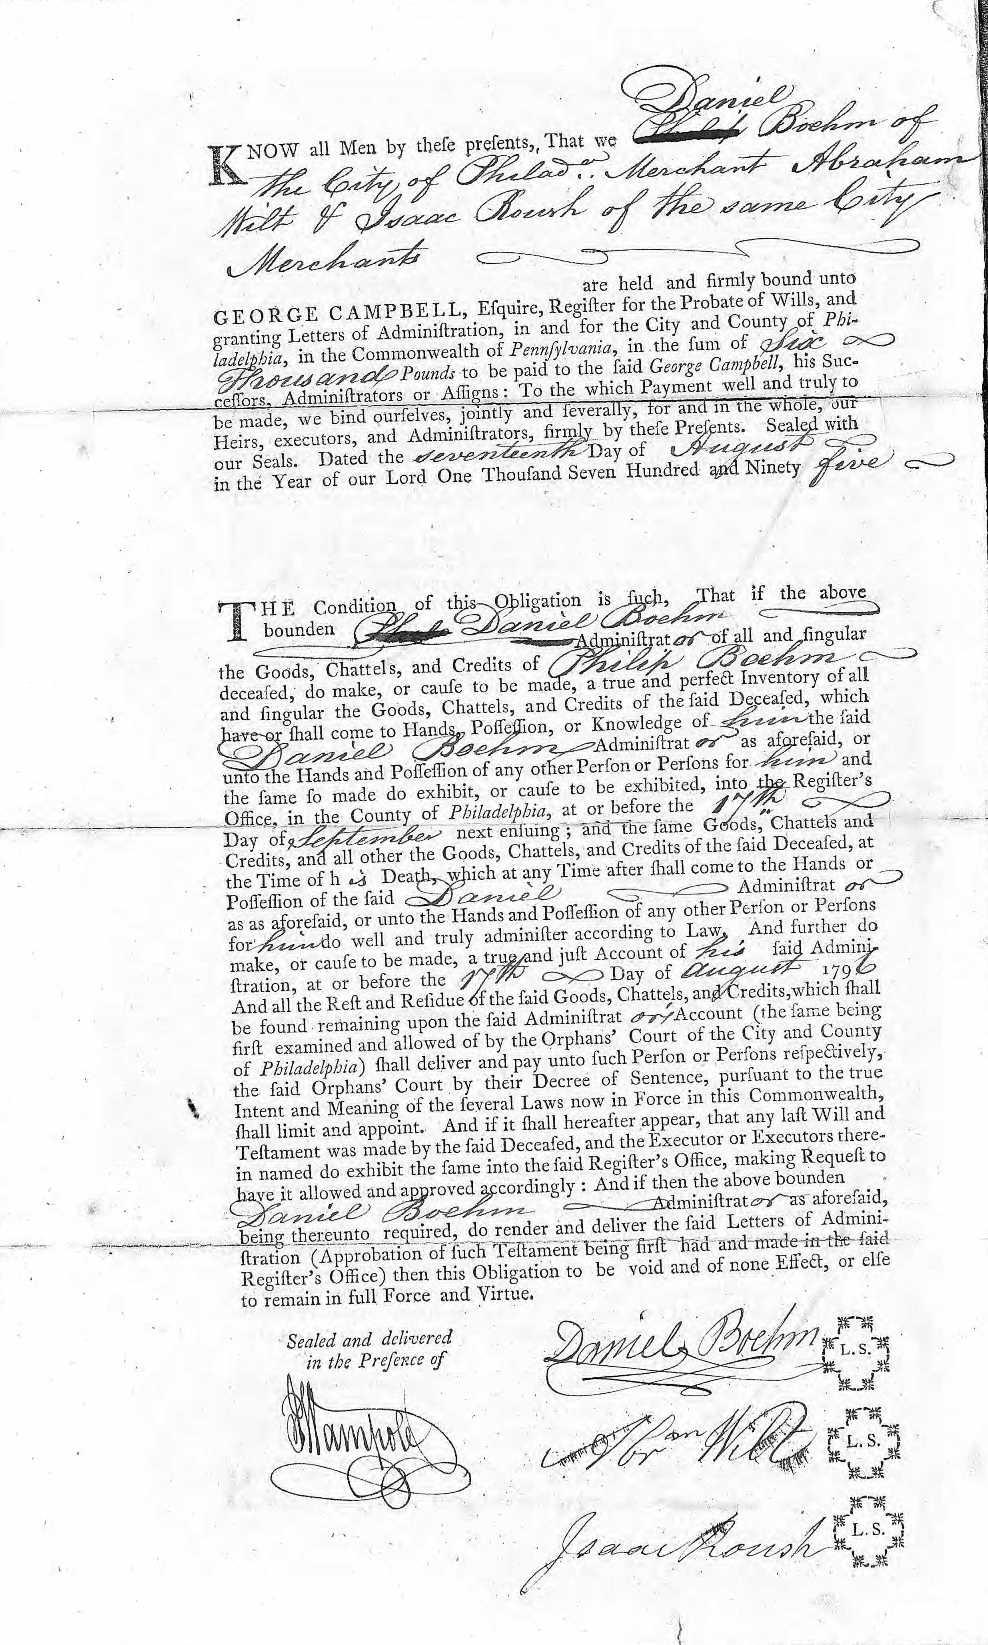 Daniel
KNOW all Men by theſe preſents, That we Philip Boehm of
the City of Philada. Merchant Abraham
Wilt & Isaac Roush of the same City
Merchants
are held and firmly bound unto
GEORGE CAMPBELL, Eſquire, Regiſter for the Probate of Wills, and
granting Letters of Adminiſtration, in and for the City and County of Phi-
ladelphia, in the Commonwealth of Pennſylvania, in the ſum of Six
Thousand Pounds to be paid to the ſaid George Campbell, his Suc-
ceſſors, Adminiſtrators or Aſſigns: To the which Payment well and truly to
be made, we bind ourſelves, jointly and ſeverally, for and in the whole, our
Heirs, executors, and Adminiſtrators, firmly by theſe Preſents. Sealed with
our Seals. Dated the seventeenth Day of August
in the Year of our Lord One Thouſand Seven Hundred and Ninety five
THE Condition of this Obligation is ſuch, That if the above
bounden Daniel Boehm
Adminiſtrator of all and ſingular
the Goods, Chattels, and Credits of Philip Boehm
deceaſed, do make, or cauſe to be made, a true and perfect Inventory of all
and ſingular the Goods, Chattels, and Credits of the ſaid Deceaſed, which
have or ſhall come to Hands, Poſſeſſion, or Knowledge of him the ſaid
Daniel Boehm Adminiſtrat or as aforeſaid, or
unto the Hands and Poſſeſſion of any other Perſon or Perſons for him and
the ſame ſo made do exhibit, or cauſe to be exhibited, into the Regiſter's
Office, in the County of Philadelphia, at or before the 17th
Day of September next enſuing; and the ſame Goods, Chattels and
Credits, and all other the Goods, Chattels, and Credits of the ſaid Deceaſed, at
the Time of h is Death, which at any Time after ſhall come to the Hands or
Poſſeſſion of the ſaid Daniel Adminiſtrat or
as as aforeſaid, or unto the Hands and Poſſeſſion of any other Perſon or Perſons
for him do well and truly adminiſter according to Law. And further do
make, or cauſe to be made, a true and juſt Account of his ſaid Admini-
ſtration, at or before the 17th Day of August 1796
And all the Reſt and Reſidue of the ſaid Goods, Chattels, and Credits, which ſhall
be found remaining upon the ſaid Adminiſtrat or's Account (the ſame being
firſt examined and allowed of by the Orphans' Court of the City and County
of Philadelphia) ſhall deliver and pay unto ſuch Perſon or Perſons reſpectively,
the ſaid Orphans' Court by their Decree of Sentence, purſuant to the true
Intent and Meaning of the ſeveral Laws now in Force in this Commonwealth,
ſhall limit and appoint. And if it ſhall hereafter appear, that any laſt Will and
Teſtament was made by the ſaid Deceaſed, and the Executor or Executors there-
in named do exhibit the ſame into the ſaid Regiſter's Office, making Requeſt to
have it allowed and approved accordingly: And if then the above bounden
Daniel Boehm Adminiſtrator as aforeſaid,
being thereunto required, do render and deliver the ſaid Letters of Admini-
ſtration (Approbation of ſuch Teſtament being firſt had and made in the ſaid
Regiſter's Office) then this Obligation to be void and of none Effect, or elſe
to remain in full Force and Virtue.
Sealed and delivered
in the Preſence of
Wampole
Daniel Boehm L.S.
Abram Wilt L.S.
Isaac Roush L.S.